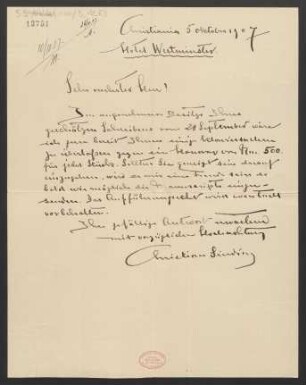 12781
Christiania 5 oktober 1907
Hotel Westminster
Sehr verehrter Herr!
Im angenehmen Besitze Ihres
geschätzten Schreibens vom 28 September wäre
ich gern bereit Ihnen einige Klavierstücke
zu überlassen gegen ein Honorar von Mk. 500.
für jedes Stück. Sollten Sie geneigt sein darauf
einzugehen, wird es mir eine Freude sein so
bald wie möglich die Manuscripte einzu-
senden. Das Aufführungsrecht wird eventuell
vorbehalten.
Ihre gefällige Antwort erwartend
mit vorzüglicher Hochachtung
Christian Sinding